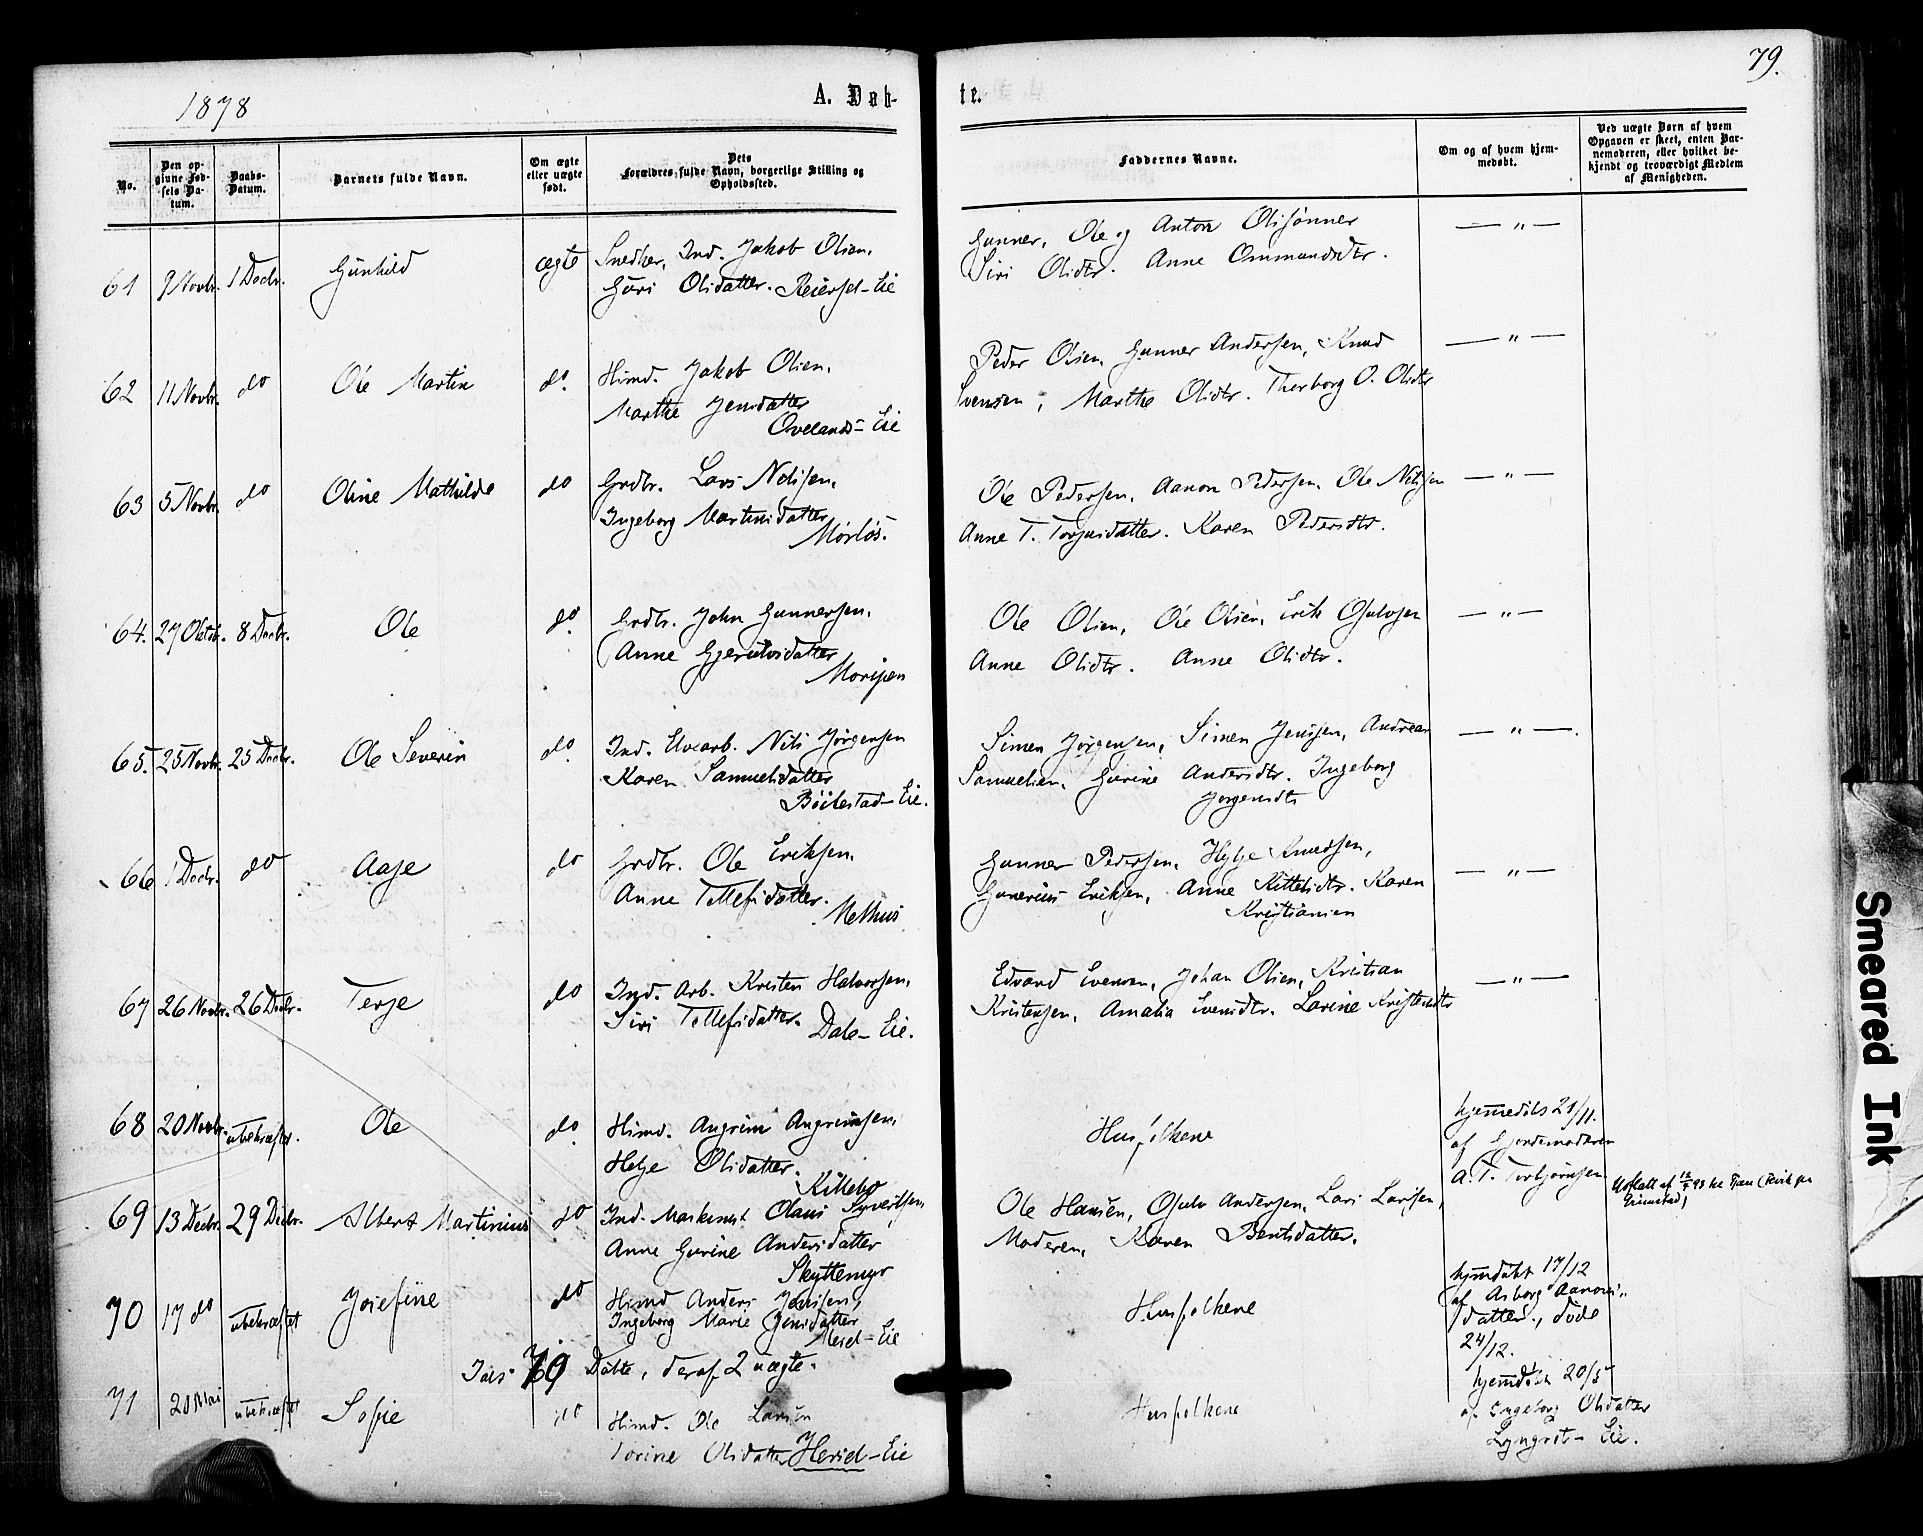 79.
1878
A. Døb-
te.
No.
Den op-
givne Fød-
sels Da-
tum.
Daabs-
Datum.
Barnets fulde Navn.
Om ægte
eller uægte
født.
Dets
Forældres fulde Navn, borgerlige Stilling og
Opholdssted.
Faddernes Navne.
Om og af hvem hjem-
medøbt.
Ved uægte Børn af hvem
Opgaven er skeet, enten Bar-
nemoderen, eller hvilket be-
kjendt og troværdigt Medlem
af Menigheden.
61 9 Novbr. 1 Decbr. Gunhild ægte Snedker, Ind. Jakob Olsen,
Guri Olsdatter. Reiersøl-Eie
Gunner, Ole og Anton Olssønner
Siri Olsdtr. Anne Ommundsdtr.
— " —
62 11 Novbr. do Ole Martin do. Husmd. Jakob Olsen,
Marthe Jensdatter
Ovelands-Eie
Peder Olsen, Gunner Andersen, Knud
Svensen, Marthe Olsdtr. Therborg O. Olsdtr
— " —
63 5 Novbr. do Oline Mathilde do Grdbr. Lars Nelsen,
Ingeborg Martinsdatter
Mørløs.
Ole Pedersen, Aanon Pedersen, Ole Nilsen
Anne T. Torjusdatter. Karen Pedersdtr.
— " —
64. 27 Oktbr. 8 Decbr. Ole do. Grdbr. John Gunnersen,
Anne Gjerulvsdatter
Ole Olsen, Ole Olsen, Erik Gjulvsen
Anne Olsdtr. Anne Olsdtr.
— " —
65. 25 Novbr. 25 Decbr. Ole Severin do. Ind. Elvearb. Nils Jørgensen
Karen Samuelsdatter
Bøilestad-Eie.
Simen Jørgensen, Simen Jensen, Andreas
Samuelsen, Gurine Andersdtr. Ingeborg
Jørgensdtr
— " —.
66 1 Decbr. do Aase do Grdbr. Ole Eriksen,
Anne Tellefsdatter.
Melhus
Gunner Pedersen, Helge Knudsen,
Gunerius Eriksen, Anne Kittelsdtr. Karen
Kristiansen
— " —
67 26 Novbr. 26 Decbr. Terje do Ind. Arb. Kristen Halvorsen,
Siri Tellefsdatter. Dale-Eie.
Edvard Evensen, Johan Olsen, Kristian
Kristensen, Amalia Evensdtr. Lovine Kristensdtr
— " —
68 20 Novbr. ubekræftet. Ole do. Husmd. Angrim Angrimsen,
Helje Olsdatter.
Killebo
Husfolkene
hjemmedøbt 21/11.
af Gjordemoderen
A. T. Torbjørnsen
69 13 Decbr. 29 Decbr. Albert Martinius do Ind. Maskinist Olaus Syvertsen,
Anne Gurine Andersdatter
Skyttemyr
Ole Hansen, Gjulv Andersen, Lars Larsen,
Moderen, Karen Bentsdatter.
70 17 do ubekræftet Josefine do Husmd Anders Jensen,
Ingeborg Marie Jensdatter
Hesel-Eie
Husfolkene
hjemdøbt 17/12
af Asborg Aanons-
datter, døde
24/12.
Ials 70 Døbte, deraf 2 uægte.
71 20 Mai ubekræftet Sofie do Husmd. Ole Larsen
Torine Olsdatter Hesel-Eie
Husfolkene
hjemdøbt 20/5
af Ingeborg Olsdatter
Lyngrot-Eie.
Smeared Ink